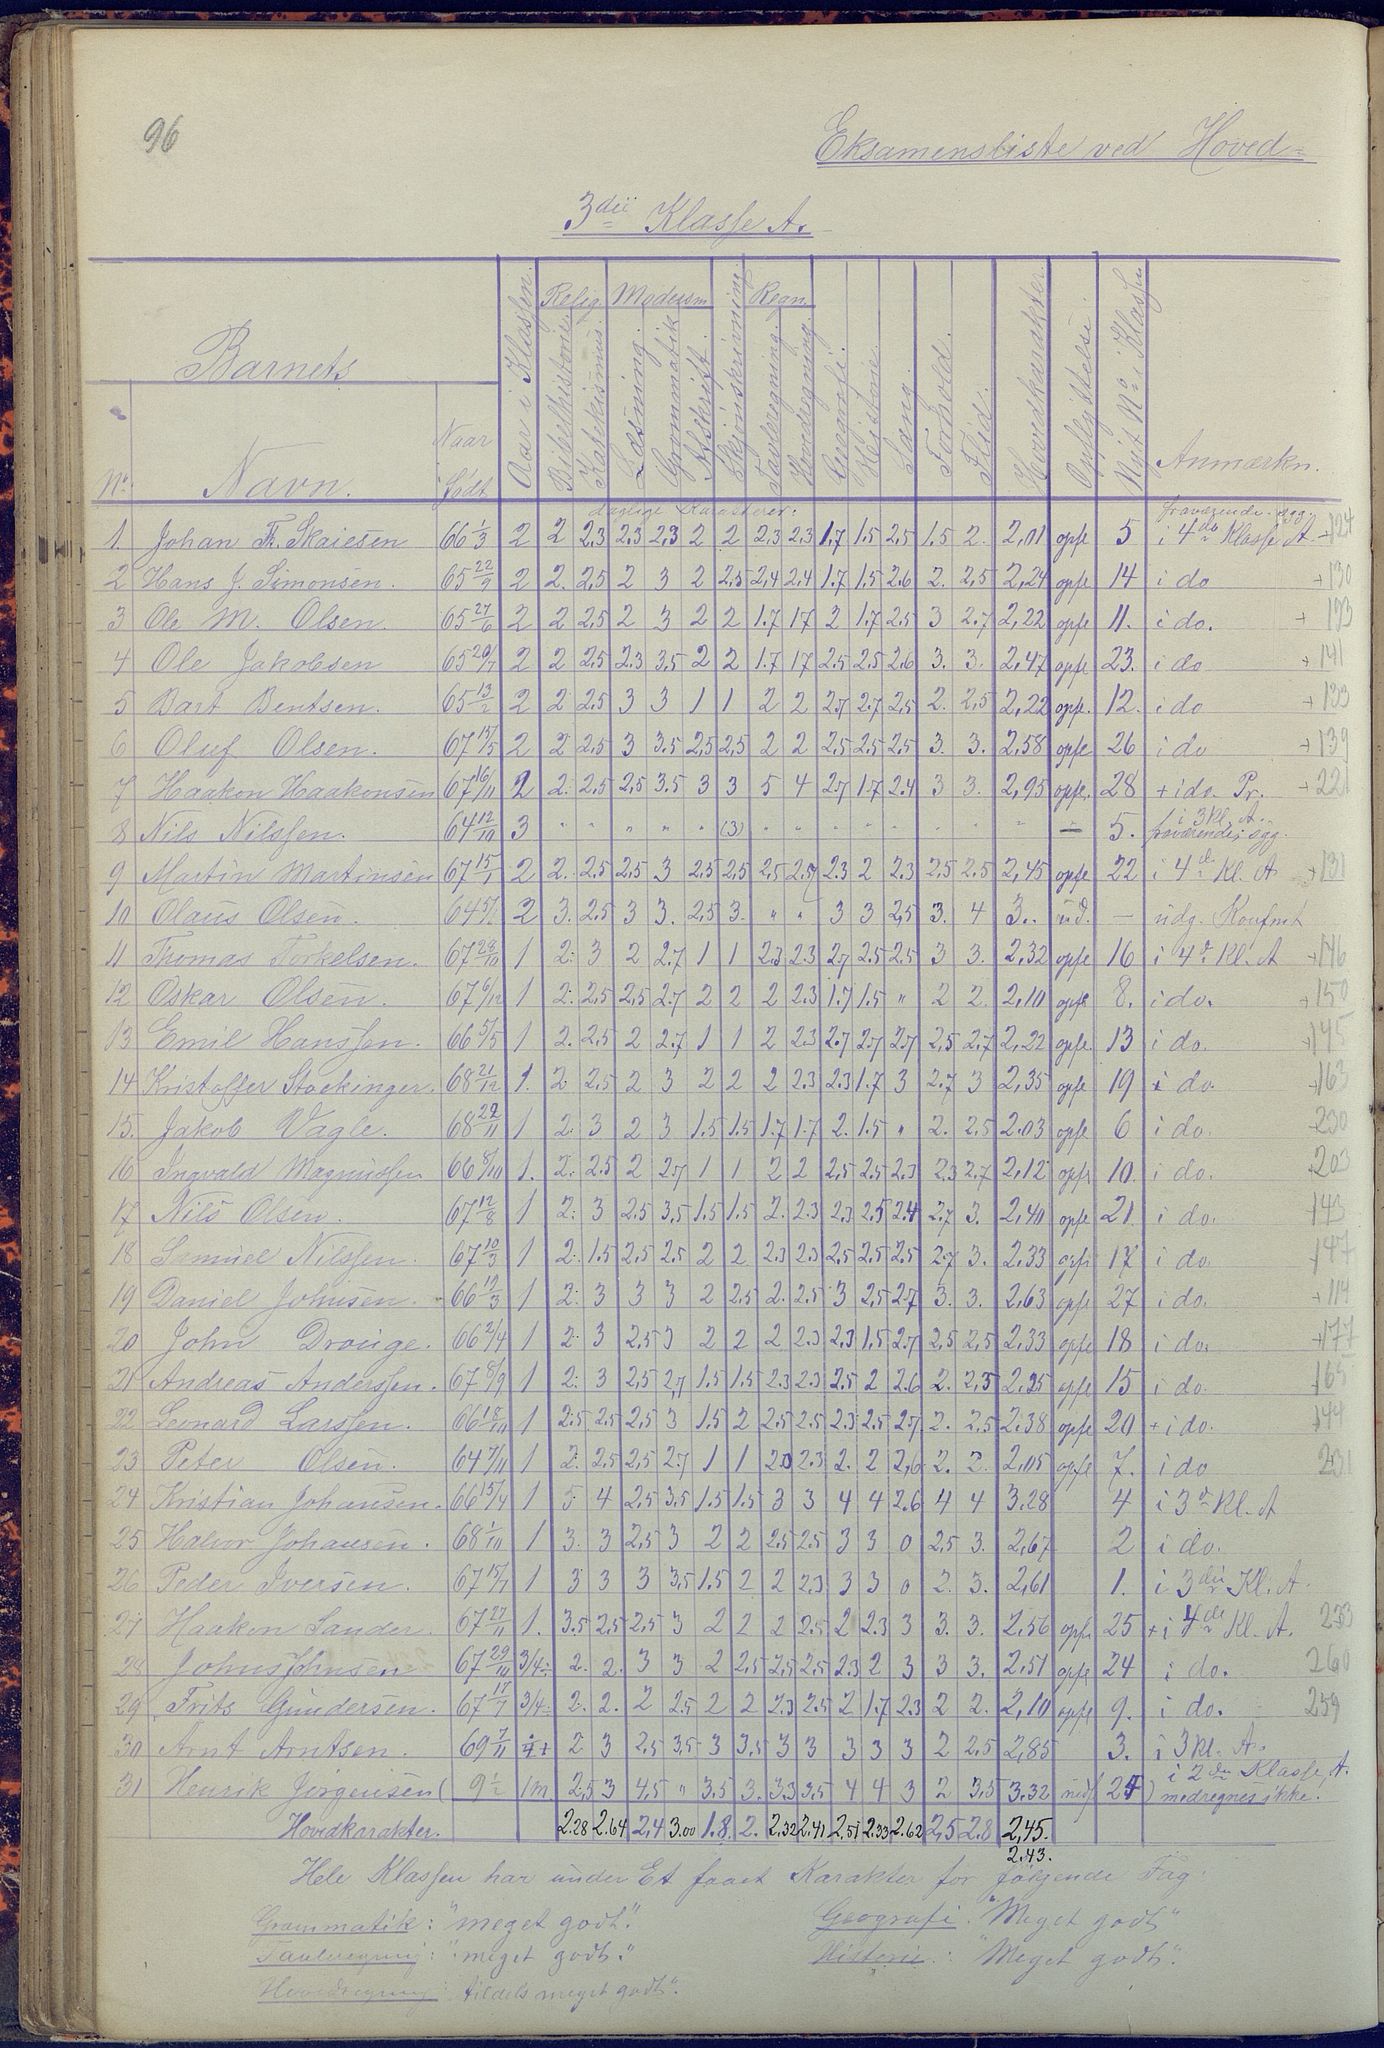 96
Eksamensliste ved Hoved=
3die Klasse A.
Barnets
No. Navn. Naar født Aar i Klassen. Relig. Bibelhistorie. Katekismus. Modersm. Læsning. Grammatik. Afskrift. Skjønskrivning. Regn. Tavleregning. Hovedregning. Geografi. Historie. Sang. Forhold. Flid. Hovedkarakter. Opflyttelse. Nyt No i Klassen Anmærkn.
daglige Karakterer. fraværende. ogg.
1. Johan Th. Skaiesen 66 1/3 2 2 2,3 2,3 2,3 2 2 2,3 2,3 1.7 1.5 2,5 1.5 2. 2,01 opfl 5 i 4de Klasse A. +124
2 Hans J. Simonsen. 65 22/9 2 2. 2,5 2 3 2 2,5 2,4 2,4 1.7 1.5 2.6 2. 2,5 2,24 opfl 14 i do +130
3 Ole M. Olsen 65 27/6 2 2 2,5 2 3 2 2 1.7 17 2 1.7 2.5 3 2.7 2,22 opfl 11. i do. + 193
4 Ole Jakobsen 65 20/7 2 2 2.5 2.3 3.5 2 2 1.7 17 2.5 2.5 2.6 3. 3. 2,47 opfl 23. i do +141
5 Bart Bentsen. 65 13/2 2 2 2.5 3 3 1 1 2 2 2.7 2.7 2,5 2. 2,5 2,22 opfl. 12. i do +133
6 Oluf Olsen. 67 13/5 2 2 2,5 3 3.5 2,5 2,5 2 2 2,5 2.5 2,5 3. 3. 2,58 opfl 26 i do +139
7 Haakon Haakonsen 67 16/11 2 2. 2,5 2,5 3.5 3 3 5 4 2.7 1.7 2.4 3 3. 2,95 opfl. 28 + i do. Pr. +221
8 Nils Nilssen. 64 12/10 3 " " " " " (3) " " " " " " " " — 5. i 3 kl. A. fraværende, ogg.
9 Martin Martinsen 67 15/1 2 2. 2.5 2,5 3 2,5 2,5 2,5 2.5 2.3 2 2,3 2,5 2.5 2,45 opfl 22 i 4de Kl. A +131
10 Olaus Olsen. 64 5/1 2 3. 2,5 3 3. 2,5 3. " " 3 3 2,5 3. 4 3.. ud. — udg. Konfmt
11 Thomas Torkelsen. 67 28/10 1 2. 3 2 2.7 1 1 2.3 2.3 2.7 2.5 2.5 3 3. 2,32 opfl 16 i 4de Kl. A +146
12 Oskar Olsen. 67 6/12 1 2. 2,5 2,5 2.7 2 2 2 2.3 1.7 1.5 " 2 2. 2,10 opfl 8. i do. +150
13 Emil Hanssen. 66 5/5 1 2. 2,5 2 2.7 1 1 2 2.3 2.7 2.7 2.7 2,5 2,7 2,22 opfl. 13 i do. +145
14 Kristoffer Stockinger. 68 21/12 1. 2 2,5 2 3 2 2 2 2.3 2.3 1.7 3 2.7 3 2,35 opfl 19 i do. 163
15. Jakob Vagle. 68 22/11 1 2. 3 2 3 1.5 1.5 1.7 1.7 2. 1.5 " 2. 2,5 2.03 opfl 6 i do. 230
16 Ingvald Magnussen 66 8/10 1. 2. 2.5 2 2.7 1 1 2 2 2,5 2.5 2.3 2.3 2.7 2,12 opfl 10. i do. 203
17 Nils Olsen. 67 12/8 1 2. 3 2.5 3,5 1.5 1.5 2. 2.3 2.3 2.5 2.4 2.7 3. 2,40 opfl 21 i do. 143
18 Samuel Nilssen. 67 10/3 1 2. 1.5 2,5 2.5 2 2 2.3 2.3 2,5 2,5 2,5 2.7 3. 2,33 opfl 17 i do. 147
19 Daniel Johnsen. 66 13/3 1 2. 3 3 3 2 2.5 2. 2.5 3 2,5 2.7 3. 3. 2,63 opfl 27 i do. +114
20 John Drouge. 66 2/4 1 2. 3 2,5 3 2 2 2 2.3 2.3 1.5 2.7 2,5 2,5 2,33 opfl 18 i do. +177
21 Andreas Anderssen. 67 8/9 1 2. 3 2,5 2,7 1.5 1.5 2.3 2.3 2.5 2 2.6 2. 2,5 2,25 opfl 15 i do. 165
22 Leonard Larssen. 66 18/10 1 2.5 2,5 2,5 3 1.5 2 2,5 2.5 2.3 2,5 2.7 2. 2,5 2,38 opfl 20 + i do. 144
23 Peter Olsen. 64 7/11 1 2. 2,5 2,5 2.7 1 1 2.0 2.3 2. 2 2,6 2. 2. 2,05 opfl 7. i do 231
24 Kristian Johansen. 66 15/4 1 5 4 2,5 3,5 1.5 1.5 3 3 4 4 2.6 4 4 3.28 4 i 3de Kl. A
25 Halvor Johansen. 68 1/10 1 3. 3 2,5 3 2 2 2,5 2.5 3 3 0 2,5 3. 2,67 2 i do.
26 Peder Iversen. 67 15/7 1 3 3 3 3,5 1.5 2 2 2.3 3 3 0 2. 3. 2,61 1. i 3die Kl. A.
27 Haakon Sander. 67 27/11 1. 3.5 2,5 2,5 3 2 2 2 2.5 2 2.3 3 3. 3. 2,56 opfl 25 + i 4de Kl. A. 233
28 Johns Johnsen 67 29/10 3/4. 2. 2. 3 3 2 2,5 2,5 2,5 2.3 2 3 3 3. 2,51 opfl 24 i do. 260
29 Frits Gundersen. 67 17/7 3/4. 2. 2. 2 2.5 2 2 2.3 2.5 2 1.7 2.3 2 2. 2,10 opfl 9. i do. 259
30 Arnt Arntsen. 69 7/11 2 3 2.5 3,5 3 3,5 3 3 3 3 3 2 2,5 2,85 3. i 3 kl. A.
31 Henrik Jørgensen ( 9 1/2 1m 2,5 3 4,5 " 3.5 3. 3.3 3.5 4 4 3 2 3,5 3,32 nedf 24 ) i 2den Klasse, A. medregnes ikke.
Hovedkarakter. 2.28 2.64 2,4 3.00 1.8. 2. 2.32 2.41 2,51 2.33 2.62 2,5 2.8 2,45.
2.43.
Hele Klassen har under Et faaet Karakter for følgende Fag:
Grammatik: "meget godt". Geografi. "Meget godt"
Tavleregning: "meget godt." Historie: "Meget godt".
Hovedregning: tildels meget godt".